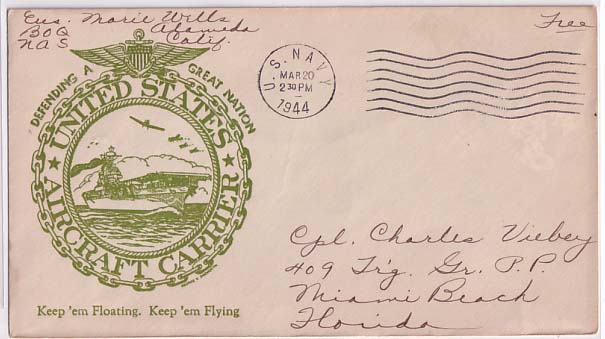 Ens. Marie Wells
BOQ Alameda
NAS Calif.
Free
DEFENDING A GREAT NATION
UNITED STATES
AIRCRAFT CARRIER
Keep 'em Floating. Keep 'em Flying
U.S. NAVY
MAR 20
2 30 PM
1944
Cpl. Charles Viebey
409 Tr'g. Gr. P.P.
Miami Beach
Florida